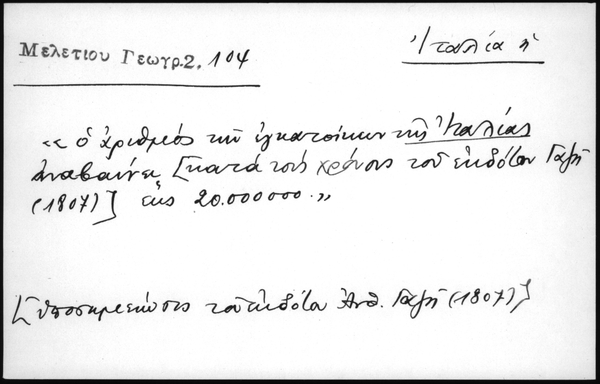 Μελετίου Γεωγρ. 2, 104
Ἰταλία ἡ
« ὁ ἀριθμὸς τῶν ἐγκατοίκων τῆς Ἰταλίας
ἀναβαίνει [κατὰ τοὺς χρόνους τοῦ ἐκδότου Γαζῆ
(1807)] εἰς 20.000000. »
[ὑποσημειώσεις τοῦ ἐκδότου Ἀνθ. Γαζῆ (1807)]